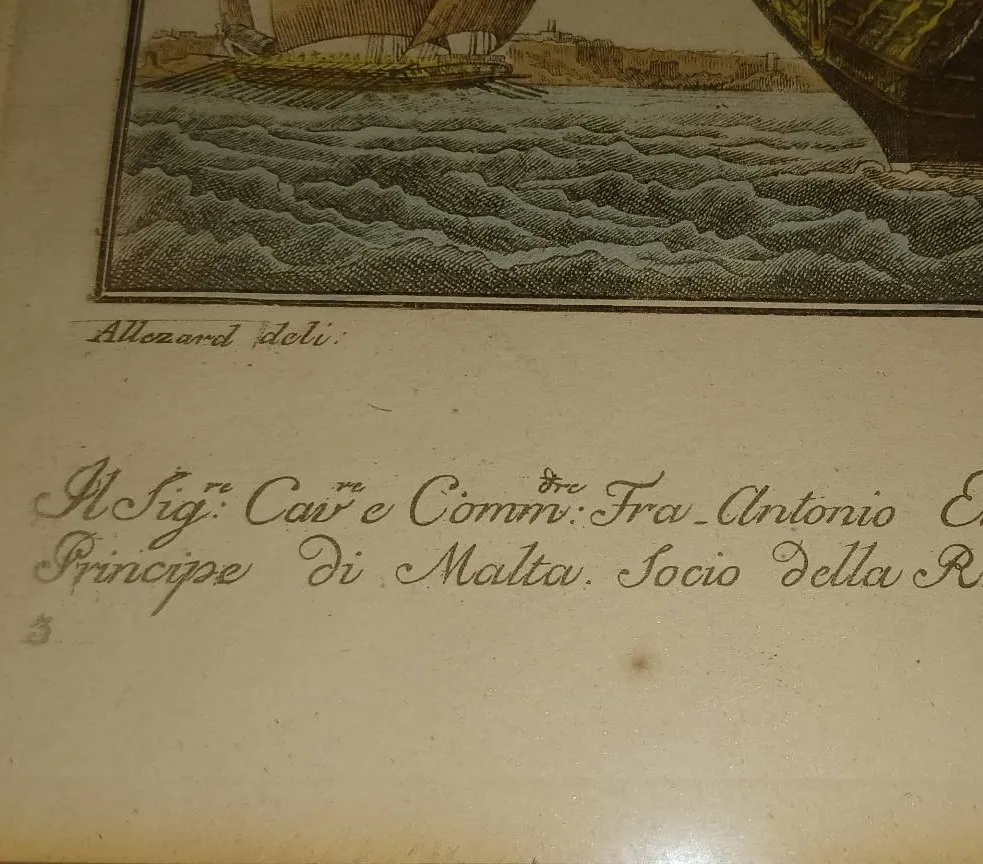 Allezard deli:
Il Sig:re Cavre e Comm:dre Fra-Antonio
Principe di Malta. Socio della R
3